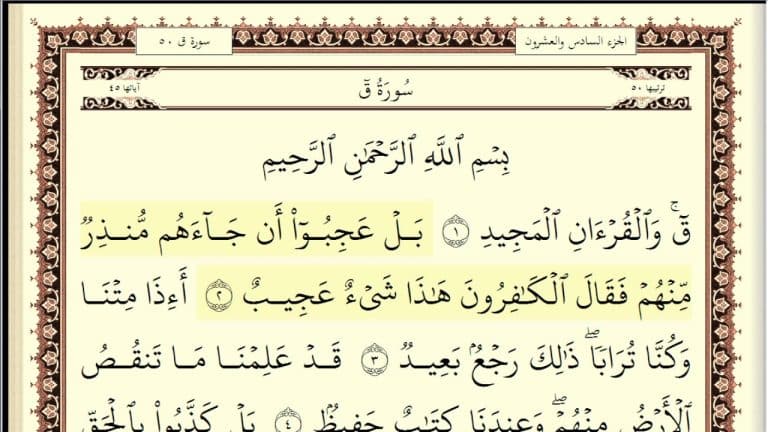 الجزء السادس والعشرون
سورة ق ٥٠
ترتيبها ٥٠
سُورَةُ قٓ
آياتها ٤٥
بِسۡمِ ٱللَّهِ ٱلرَّحۡمَٰنِ ٱلرَّحِيمِ
قٓۚ وَٱلۡقُرۡءَانِ ٱلۡمَجِيدِ ١ بَلۡ عَجِبُوٓاْ أَن جَآءَهُم مُّنذِرٞ
مِّنۡهُمۡ فَقَالَ ٱلۡكَٰفِرُونَ هَٰذَا شَيۡءٌ عَجِيبٌ ٢ أَءِذَا مِتۡنَا
وَكُنَّا تُرَابٗاۖ ذَٰلِكَ رَجۡعُۢ بَعِيدٞ ٣ قَدۡ عَلِمۡنَا مَا تَنقُصُ
ٱلۡأَرۡضُ مِنۡهُمۡۖ وَعِندَنَا كِتَٰبٌ حَفِيظُۢ ٤ بَلۡ كَذَّبُواْ بِٱلۡحَقِّ